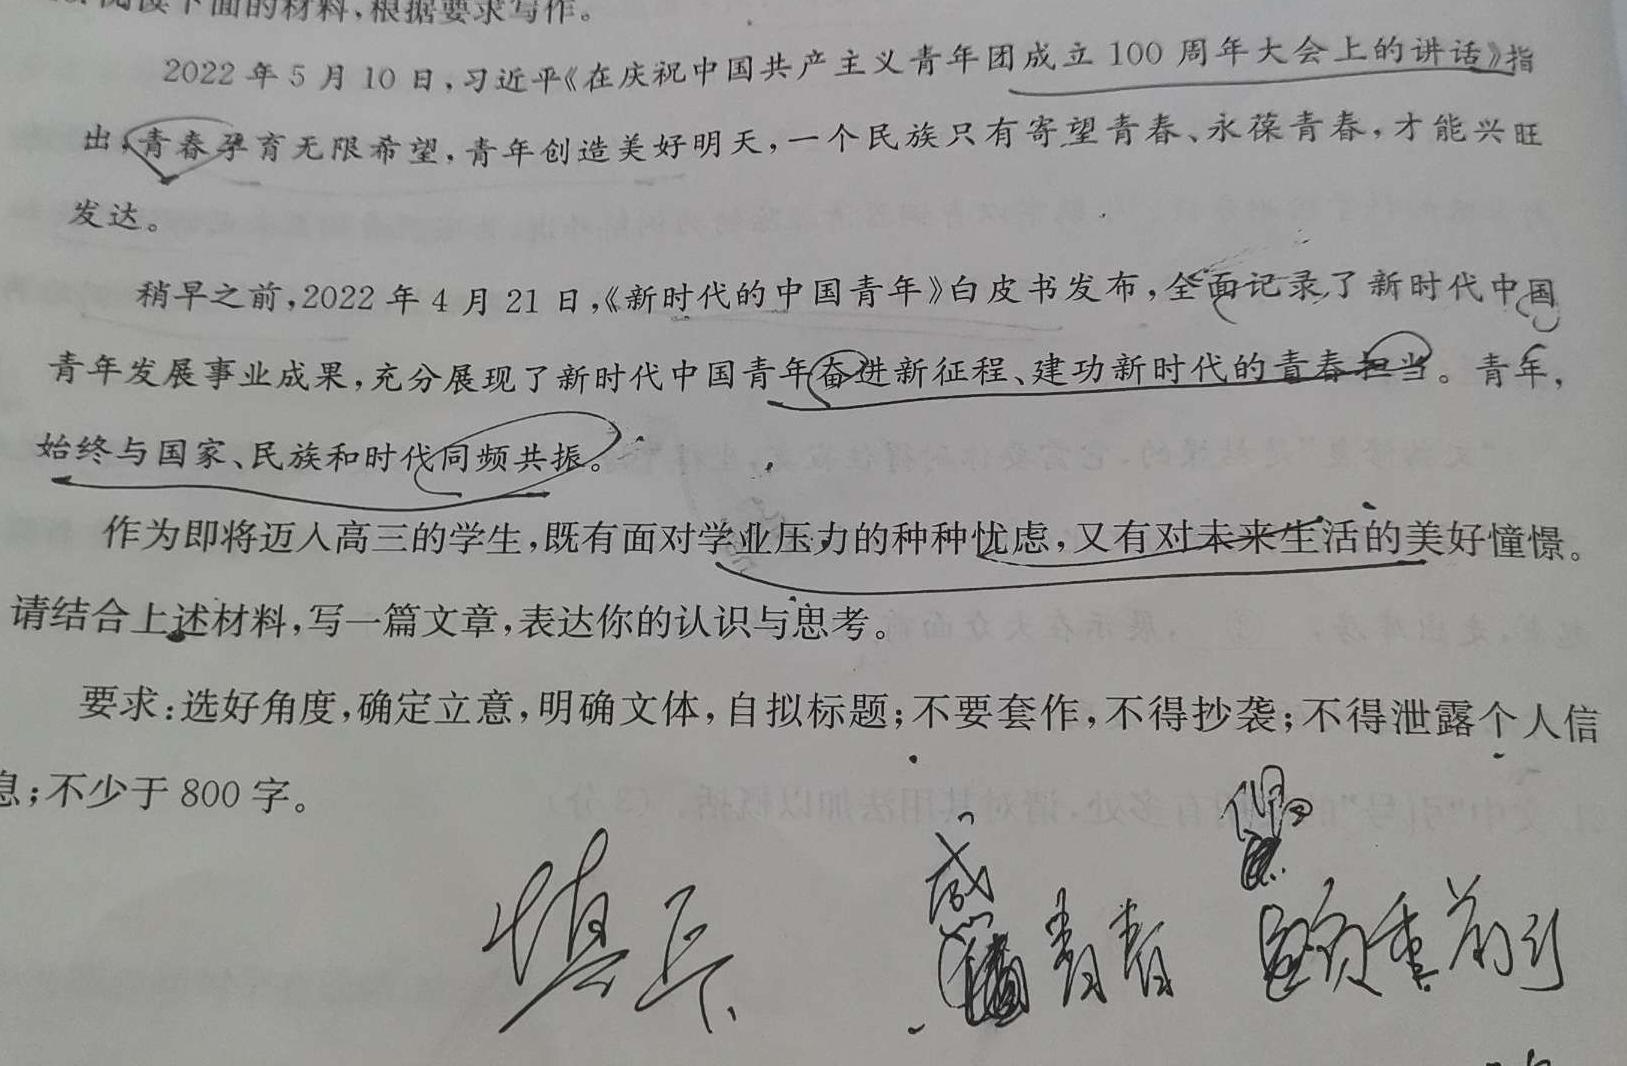 阅读下面的材料,根据要求写作。
2022年5月10日,习近平《在庆祝中国共产主义青年团成立100周年大会上的讲话》指
出,青春孕育无限希望,青年创造美好明天,一个民族只有寄望青春、永葆青春,才能兴旺
发达。
稍早之前,2022年4月21日,《新时代的中国青年》白皮书发布,全面记录了新时代中国
青年发展事业成果,充分展现了新时代中国青年奋进新征程、建功新时代的青春担当。青年,
始终与国家、民族和时代同频共振。
作为即将迈入高三的学生,既有面对学业压力的种种忧虑,又有对未来生活的美好憧憬。
请结合上述材料,写一篇文章,表达你的认识与思考。
要求:选好角度,确定立意,明确文体,自拟标题;不要套作,不得抄袭;不得泄露个人信
息;不少于800字。
重前行